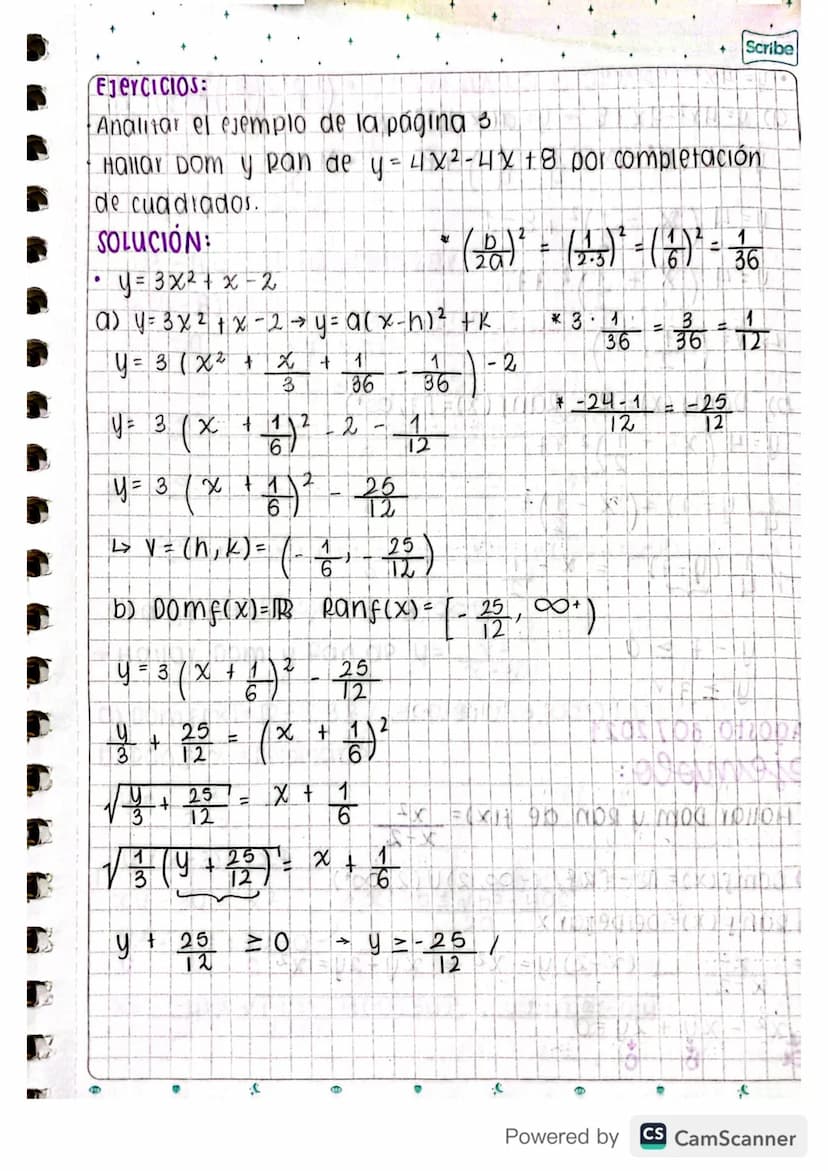 Scribe
EJERCICIOS:
· Analizar el ejemplo de la página 3
· Hallar Dom y Ran de y = 4x² - 4x + 8 por completación
de cuadrados.
SOLUCIÓN:
* (b/2a)² = (1/2·3)² = (1/6)² = 1/36
· y = 3x² + x - 2
a) y = 3x² + x - 2 → y = a(x-h)² + k
* 3 · 1/36 = 3/36 = 1/12
y = 3 (x² + x/3 + 1/36 - 1/36) - 2
* -24-1/12 = -25/12
y = 3 (x + 1/6)² - 2 - 1/12
y = 3 (x + 1/6)² - 25/12
↳ V = (h,k) = (-1/6, -25/12)
b) Domf(x) = ℝ Ranf(x) = [-25/12, ∞+)
y = 3 (x + 1/6)² - 25/12
y/3 + 25/12 = (x + 1/6)²
√(y/3 + 25/12) = x + 1/6
√(1/3 (y + 25/12)) = x + 1/6
y + 25/12 ≥ 0 → y ≥ -25/12 /
Powered by CS CamScanner